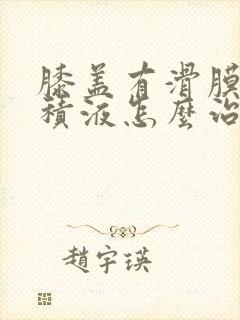 膝盖有滑膜
積液怎麼治
趙宇瑛